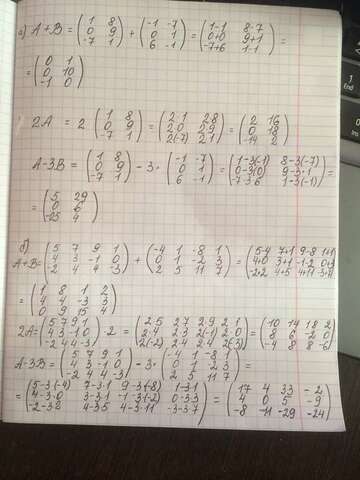 а) A+B = (1 8; 0 9; -7 1) + (-1 -7; 0 1; 6 -1) = (1-1 8-7; 0+0 9+1; -7+6 1-1) =
= (0 1; 0 10; -1 0)
2A = 2 (1 8; 0 9; -7 1) = (2·1 2·8; 2·0 2·9; 2(-7) 2·1) = (2 16; 0 18; -14 2)
A-3B = (1 8; 0 9; -7 1) - 3· (-1 -7; 0 1; 6 -1) = (1-3(-1) 8-3(-7); 0-3(0) 9-3·1; -7-3·6 1-3(-1)) =
= (5 29; 0 6; -25 4)
б) A+B = (5 7 9 1; 4 3 -1 0; -2 4 4 -3) + (-4 1 -8 1; 0 1 -2 3; 2 5 11 7) = (5-4 7+1 9-8 1+1; 4+0 3+1 -1-2 0+3; -2+2 4+5 4+11 -3+7)
= (1 8 1 2; 4 4 -3 3; 0 9 15 4)
2A = (5 7 9 1; 4 3 -1 0; -2 4 4 -3) · 2 = (2·5 2·7 2·9 2·1; 2·4 2·3 2(-1) 2·0; 2(-2) 2·4 2·4 2(-3)) = (10 14 18 2; 8 6 -2 0; -4 8 8 -6)
A-3B = (5 7 9 1; 4 3 -1 0; -2 4 4 -3) - 3· (-4 1 -8 1; 0 1 -2 3; 2 5 11 7) =
= (5-3(-4) 7-3·1 9-3(-8) 1-3·1; 4-3·0 3-3·1 -1-3(-2) 0-3·3; -2-3·2 4-3·5 4-3·11 -3-3·7) = (17 4 33 -2; 4 0 5 -9; -8 -11 -29 -24)